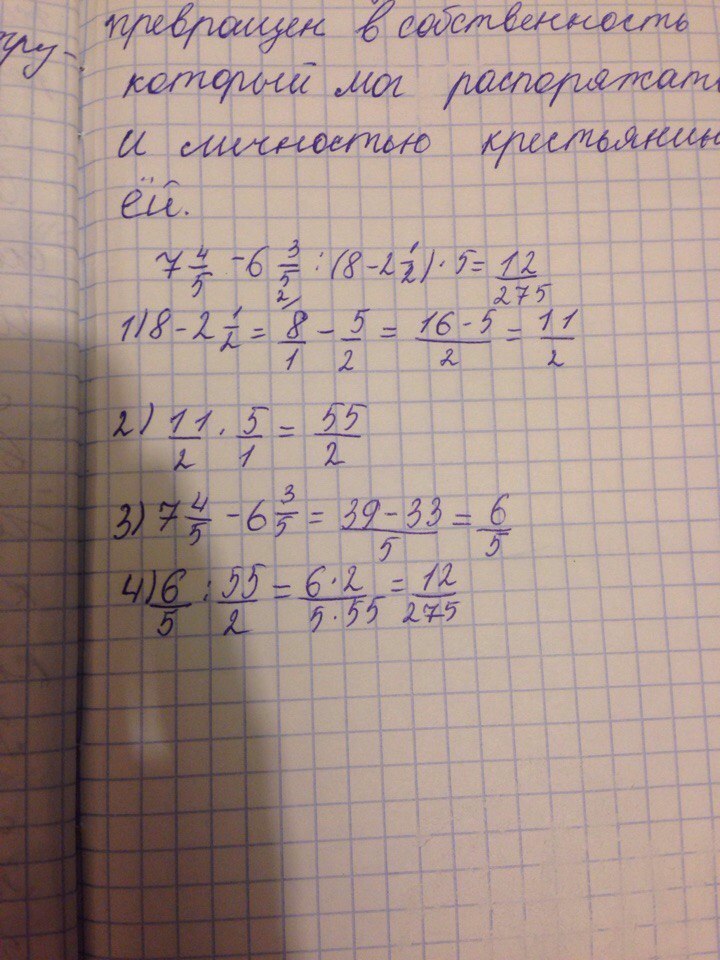 тру-
превращен в собственность
который мог распоряжать
и личностью крестьянин
ей.
7 4/5 - 6 3/5 : (8 - 2 1/2) · 5 = 12/275
1) 8 - 2 1/2 = 8/1 - 5/2 = 16-5/2 = 11/2
2) 11/2 · 5/1 = 55/2
3) 7 4/5 - 6 3/5 = 39-33/5 = 6/5
4) 6/5 : 55/2 = 6·2/5·55 = 12/275